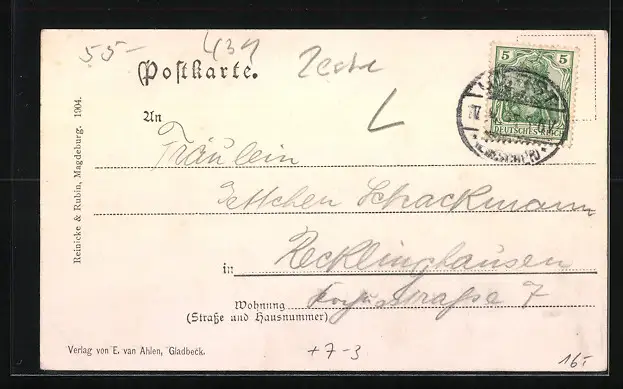 55-
439
Postkarte.
5 5
DEUTSCHES REICH
An
Fräulein
Schackmann
Reinicke & Rubin, Magdeburg. 1904.
in Recklinghausen
Wohnung straße 7
(Straße und Hausnummer)
Verlag von E. van Ahlen, Gladbeck.
+7-3
16